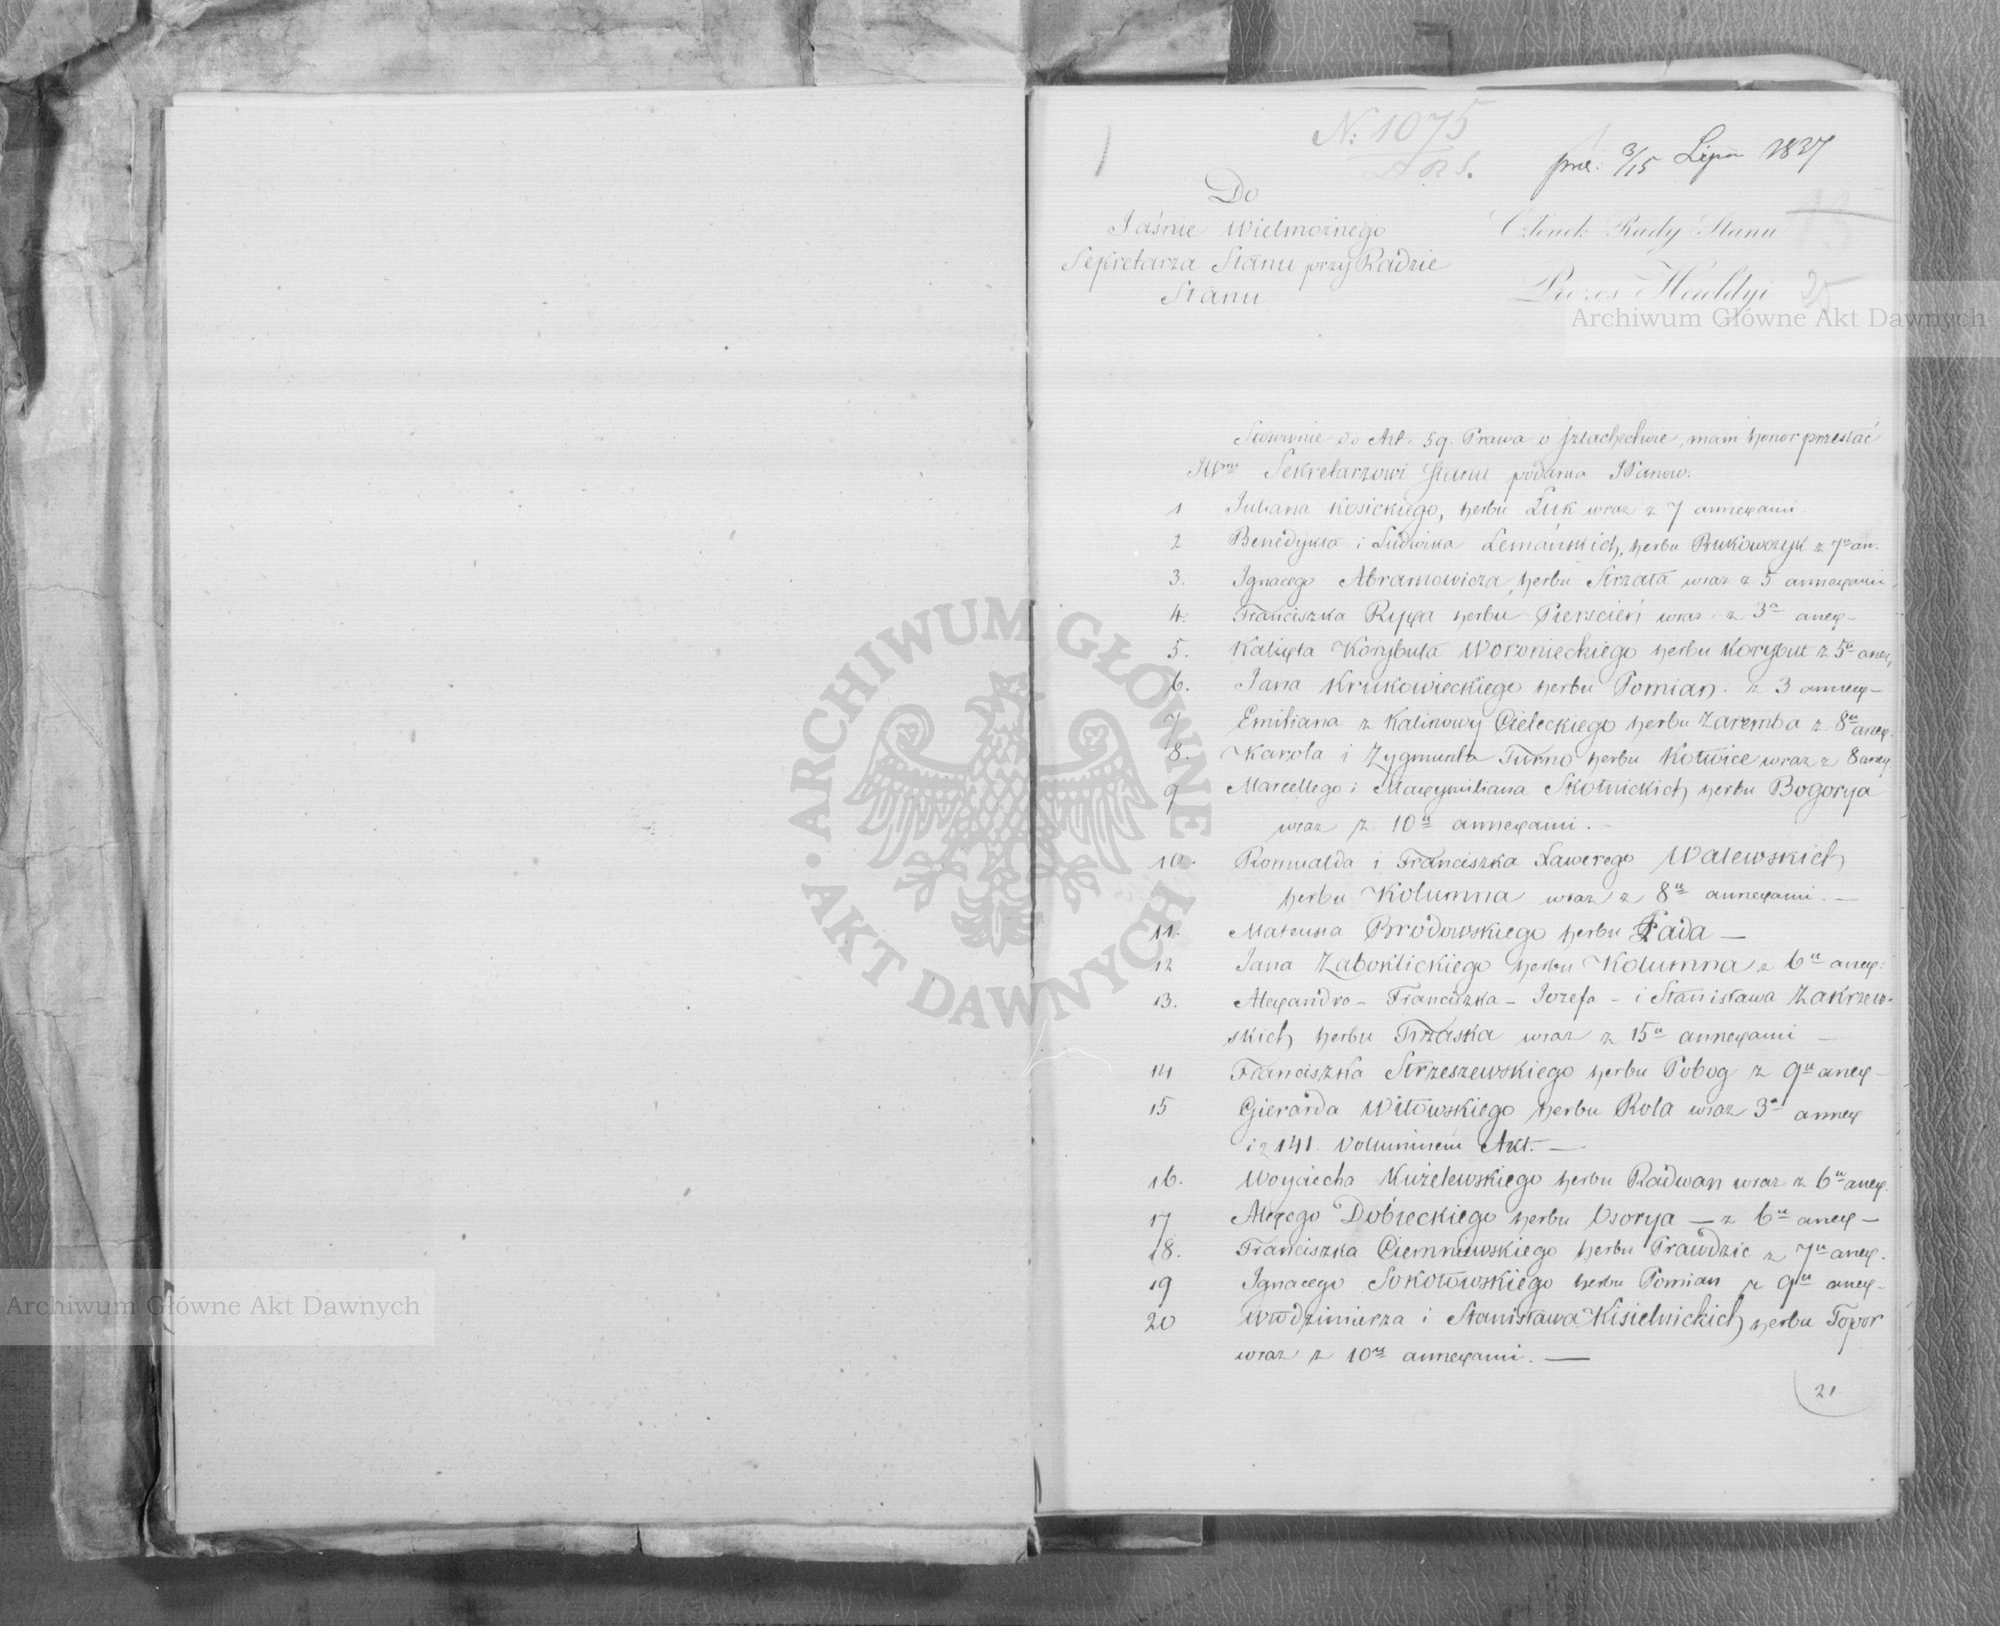 1
N: 1075
prez: 3/15 Lipca 1837
Do
Jaśnie Wielmożnego
Sekretarza Stanu przy Radzie
Stanu
Członek Rady Stanu
Prezes Heroldyi
25
Archiwum Główne Akt Dawnych
Stosownie do Art. 59. Prawa o szlachectwie, mam honor przesłać
JWmu Sekretarzowi Stanu podania JPanow.
1 Juliana Kosickiego, herbu Łuk wraz z 7 annexami.
2 Benedykta i Ludwika Lemańskich, herbu Bukowczyk z 7u an.
3. Ignacego Abramowicza, herbu Strzała wraz z 5 annexami
4. Franciszka Ryxa herbu Pierscień wraz z 3a anex—
5. Kalixta Korybuta Woronieckiego herbu Korybut z 5u anex
6. Jana Krukowieckiego herbu Pomian. z 3 annex—
7 Emiliana z Kalinowy Cieleckiego herbu Zaremba z 8u anex.
8. Karola i Zygmunta Turno herbu Kotwice wraz z 8 anex
9 Marcellego i Maxymiliana Skotnickich herbu Bogorya
wraz z 10u annexami. -
10. Romualda i Franciszka Xawerego Walewskich
herbu Kolumna wraz z 8u annexami. —
11. Mateusza Brodowskiego herbu Łada —
12 Jana Zaboklickiego herbu Kolumna z 6u anex:
13. Alexandra – Franciszka – Jozefa – i Stanisława Zakrzew-
skich herbu Trzaska wraz z 15u annexami —
14 Franciszka Strzeszewskiego herbu Pobog z 9u anex—
15 Gierarda Witowskiego herbu Rola wraz 3a annex
i z 141. Voluminem Akt. —
16. Woyciecha Kużelewskiego herbu Radwan wraz z 6u anex.
17 Alexego Dobieckiego herbu Osorya — z 6u anex —
18. Franciszka Ciemniewskiego herbu Prawdzic z 7u anex.
19 Ignacego Sokołowskiego herbu Pomian z 9u anex—
20 Włodzimierza i Stanisława Kisielnickich herbu Topor
wraz z 10u annexami. —
21
Archiwum Główne Akt Dawnych
ARCHIWUM GŁÓWNE · AKT DAWNYCH ·